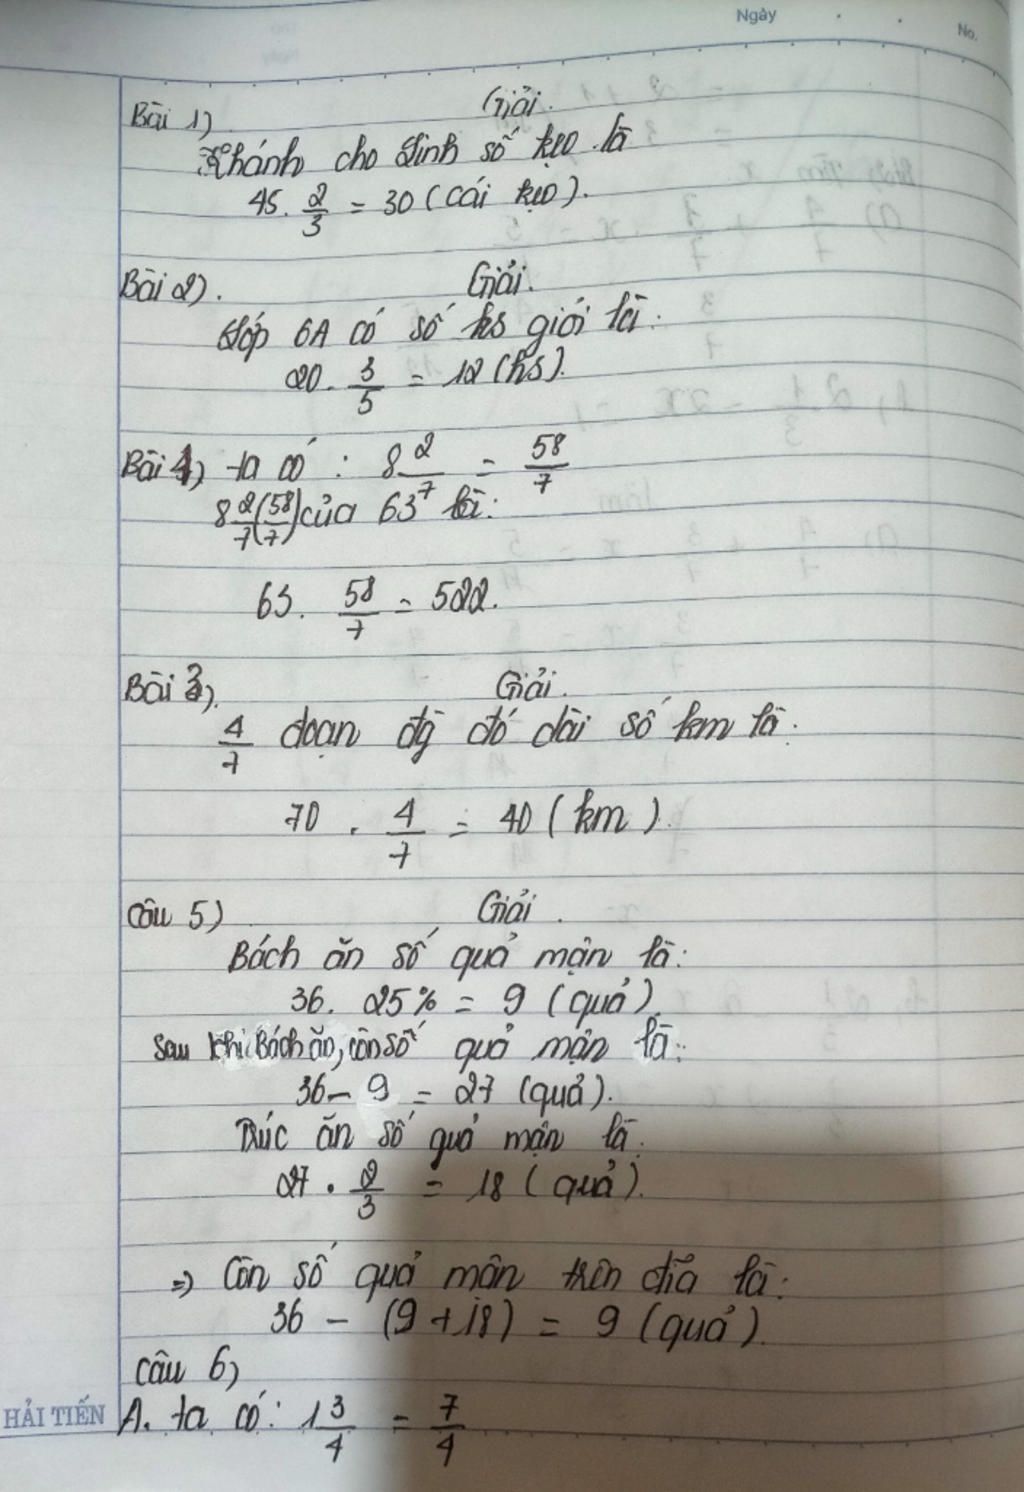 Ngày
No.
Bài 1) Giải.
Khánh cho Linh số kẹo là
45. 2/3 = 30 (cái kẹo).
Bài 2). Giải.
Lớp 6A có số hs giỏi là:
20. 3/5 = 12 (hs).
Bài 4) ta có: 8 2/7 = 58/7
8 2/7 (58/7) của 63 là:
63. 58/7 = 522.
Bài 3). Giải.
4/7 đoạn đg đó dài số km là:
70 . 4/7 = 40 (km).
Câu 5) Giải.
Bách ăn số quả mận là:
36. 25% = 9 (quả)
Sau khi Bách ăn, còn số quả mận là:
36 - 9 = 27 (quả).
Trúc ăn số quả mận là:
27 . 2/3 = 18 (quả).
=> Còn số quả mận trên đĩa là:
36 - (9 + 18) = 9 (quả).
Câu 6)
HẢI TIẾN
A. ta có: 1 3/4 = 7/4